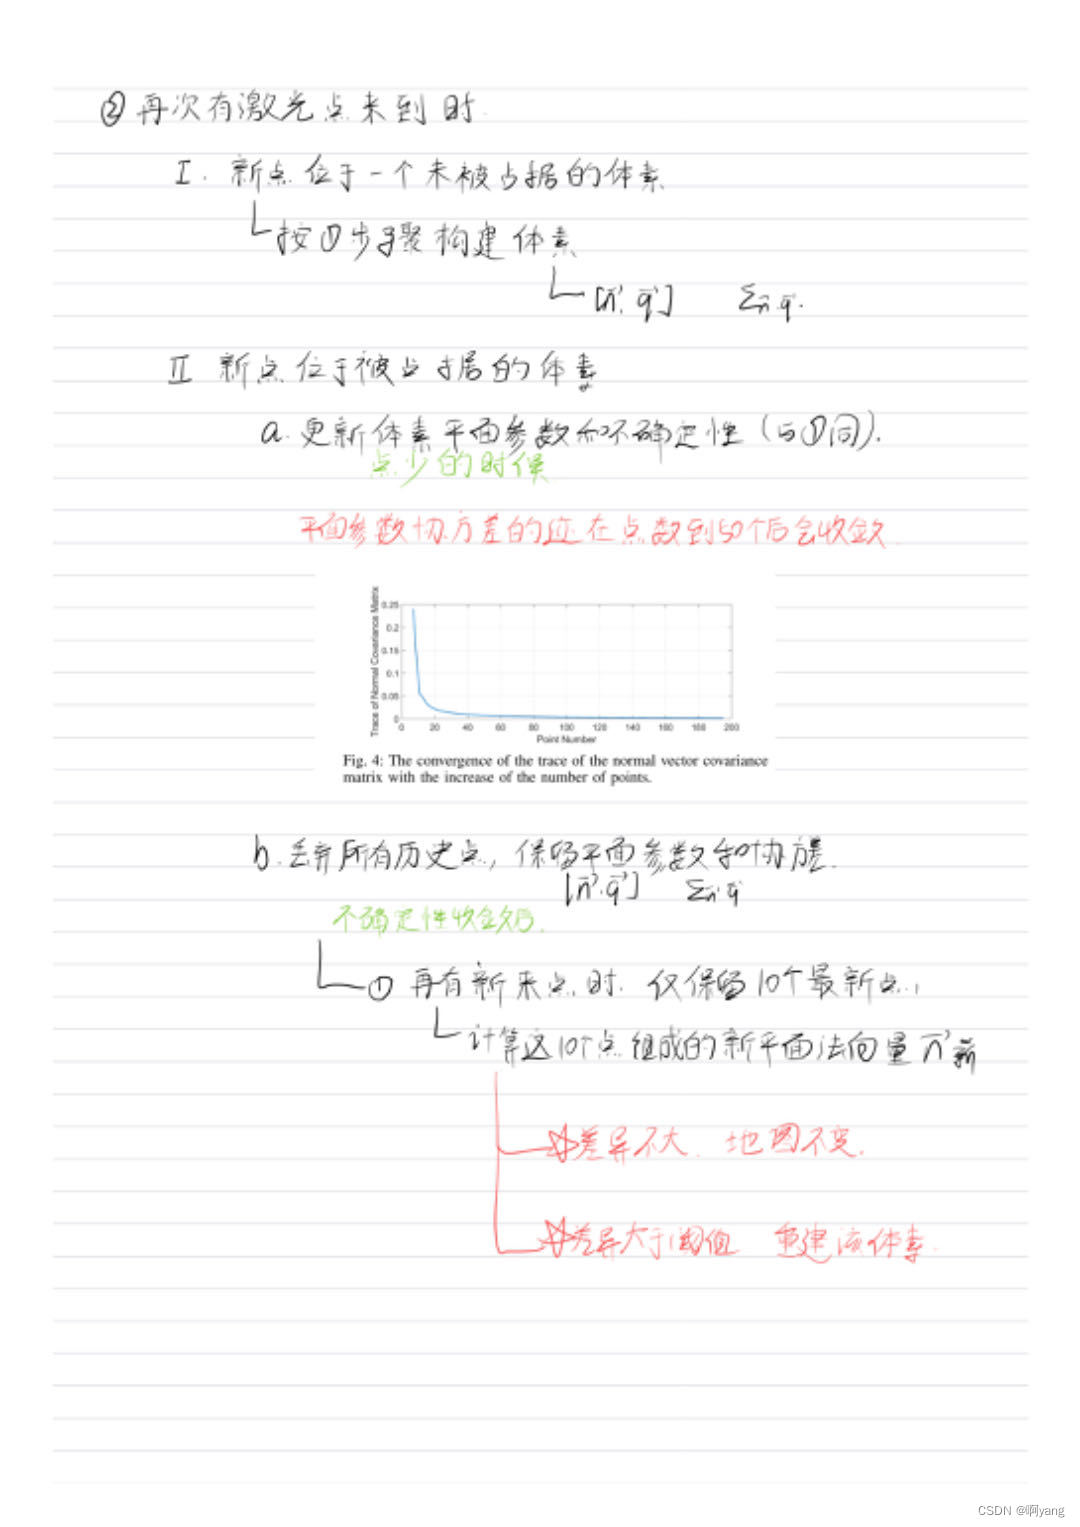 ② 再次有激光点来到时.
I. 新点位于一个未被占据的体素
按①步骤构建体素
[n⃗, q⃗] Σn.q.
II 新点位于被占据的体素
a. 更新体素平面参数和不确定性 (与①同).
点少的时候
平面参数协方差的迹在点数到50个后会收敛
Trace of Normal Covariance Matrix
0.25
0.2
0.15
0.1
0.05
0
0 20 40 60 80 100 120 140 160 180 200
Point Number
Fig. 4: The convergence of the trace of the normal vector covariance
matrix with the increase of the number of points.
b. 丢弃所有历史点, 保留平面参数和协方差.
[n⃗.q⃗] Σn.q
不确定性收敛后.
① 再有新来点时. 仅保留10个最新点,
计算这10个点组成的新平面法向量 n⃗新
☆差异不大. 地图不变.
☆差异大于阈值 重建该体素.
CSDN @啊yang